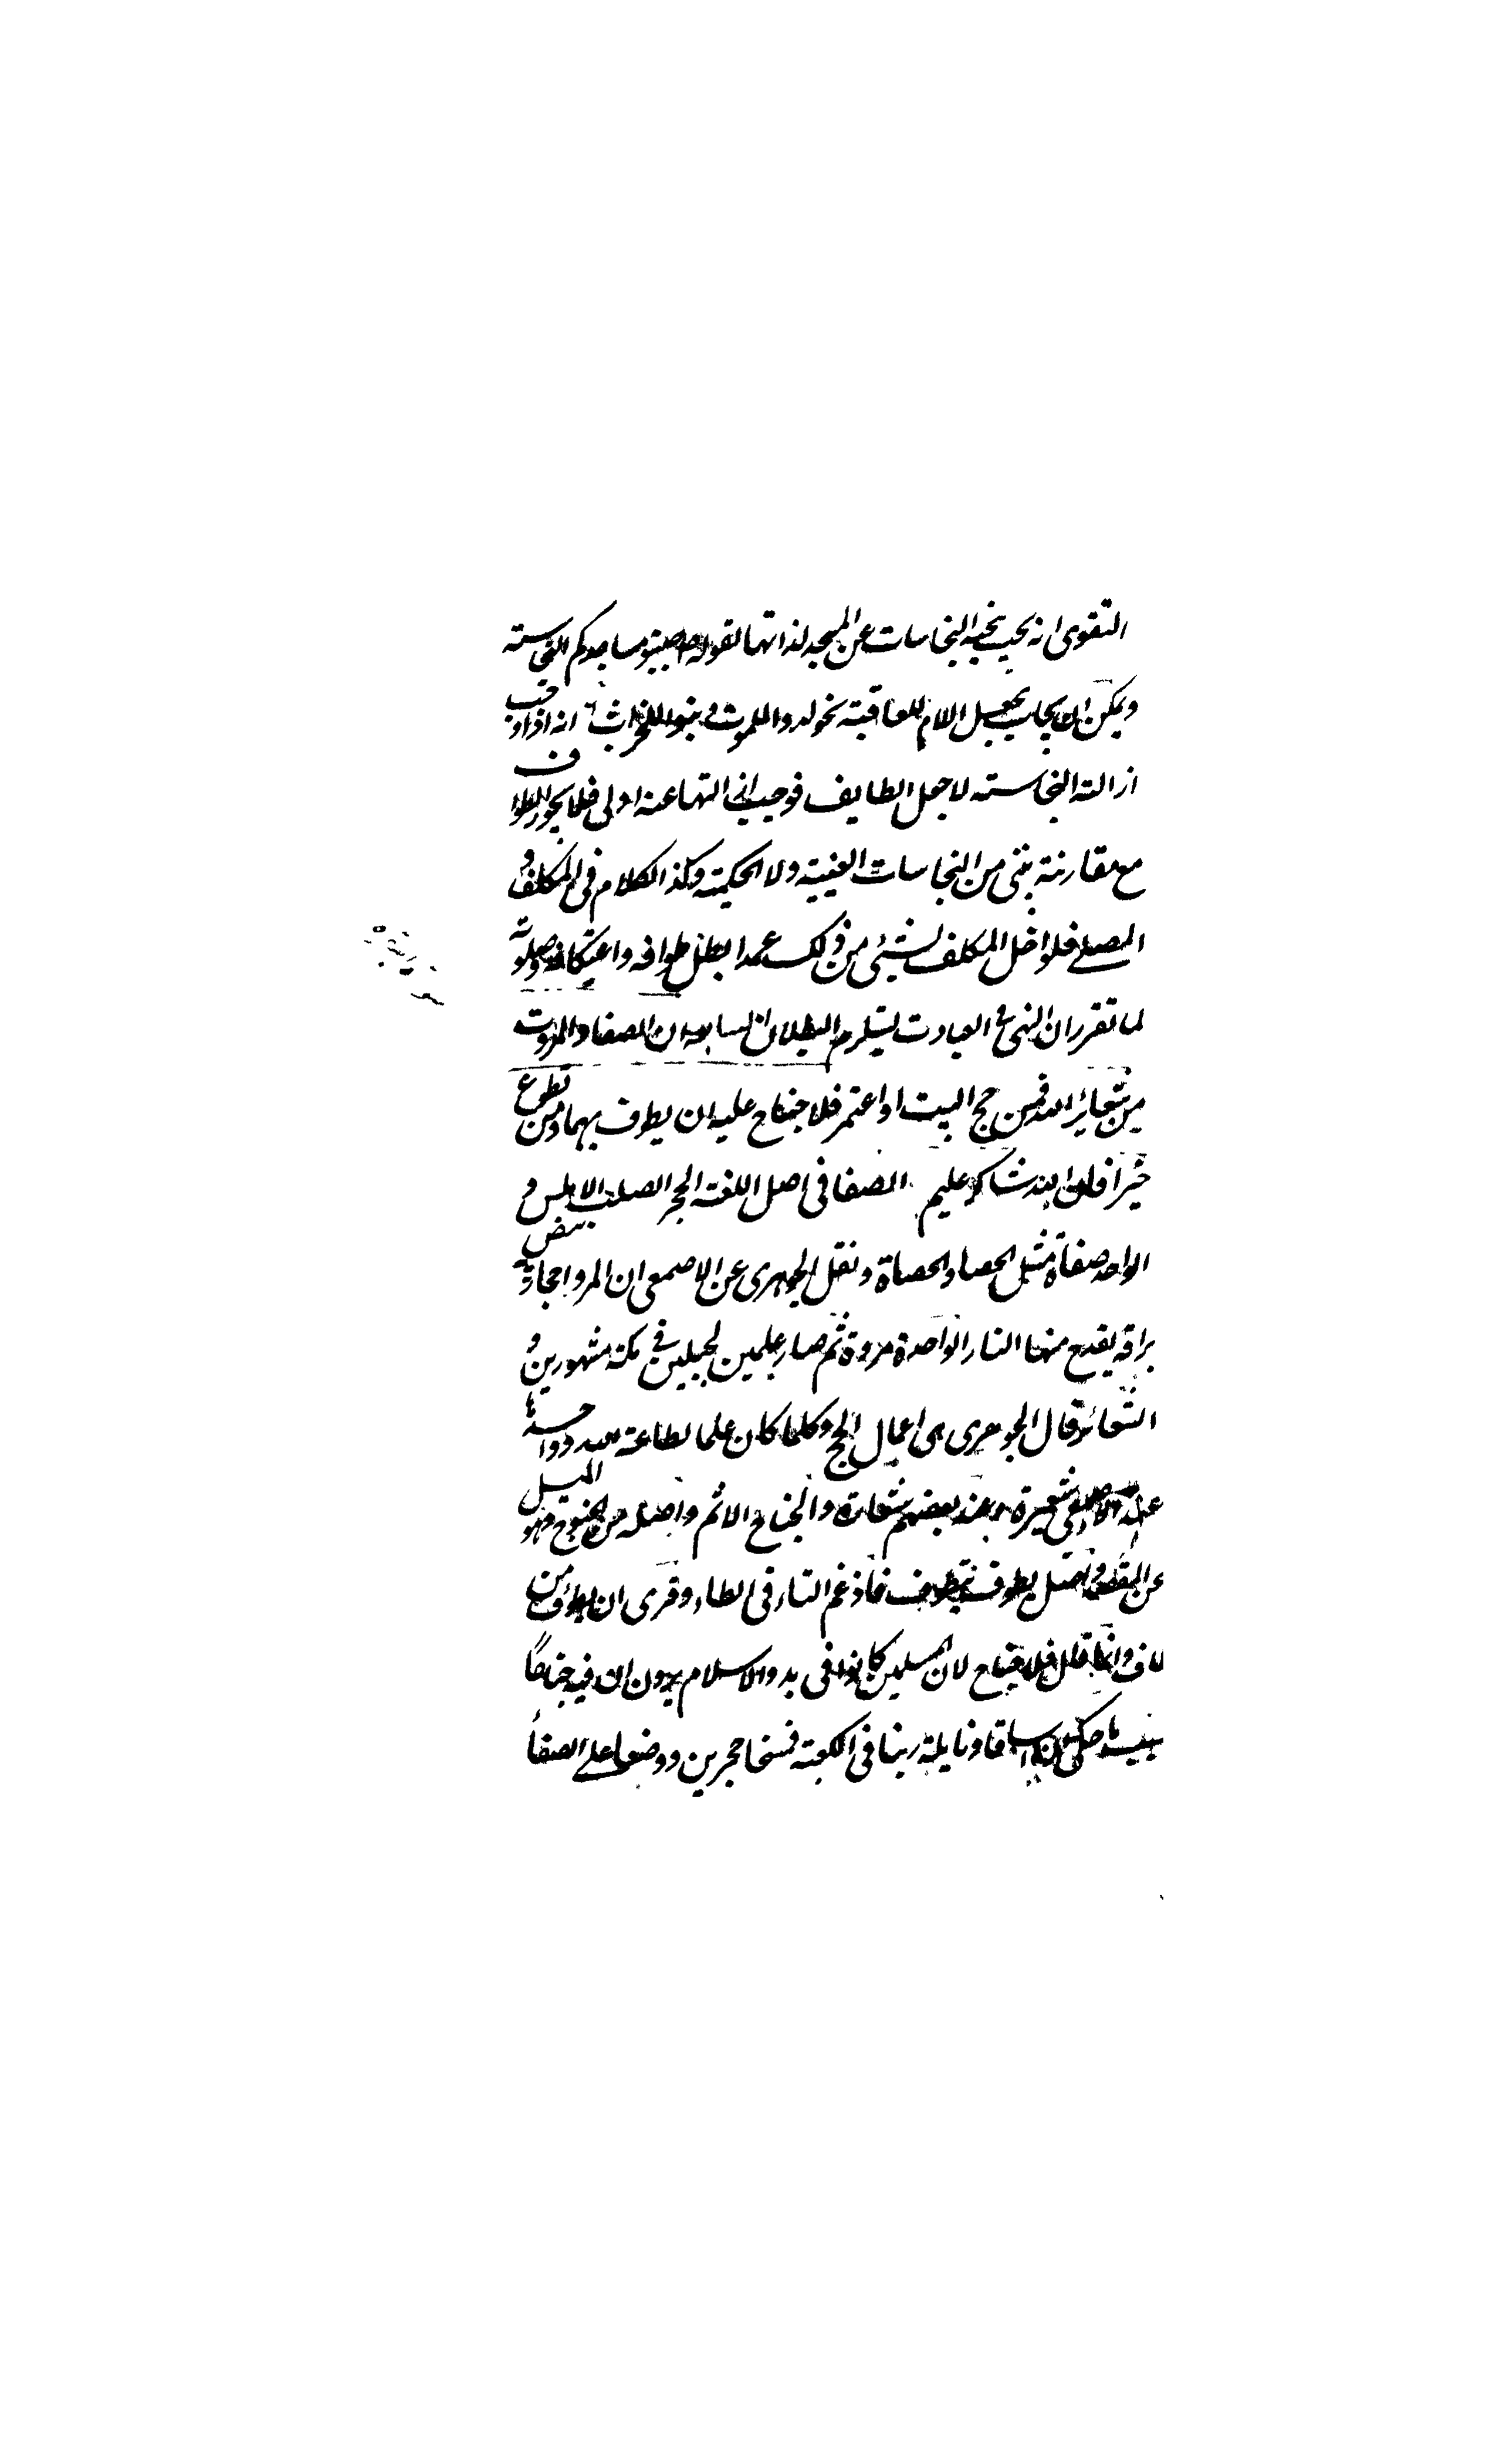 التقوى انه يجب تجنيب النجاسات عن المسجد لذاتها لقوله جنبوا مساجدكم النجاسته
ويمكن ان يجاب بجعل اللام للعاقبته نحو لدوا للموت و ابنوا للخراب انه اذا وجب
ازالته النجاسته لاجل الطايف فوجب ازالتها عنه اولى فلا يجوز الطواف
مع مقارنة شئ من النجاسات العينية ولا الحكيمته وكذا الكلام فى المكلف و
المصلى فلو اخل المكلف بشيئ من ذلك عمدا بطل طوافه واعتكافه وصلوته
لما تقرر ان النهى فى العبادت يستلزم البطلان السابعه ان الصفا والمروت
من شعائر الله فمن حج البيت او اعتمر فلا جناح عليه ان يطوف بهما ومن تطوع
خيرا فان الله شاكر عليم الصفا فى اصل اللغته الحجر الصلب الاملس و
الواحد صفاة مثل الحصا والحصاة ونقل الجوهرى عن الاصمعى ان المروا حجارة بيض
براقه يقدح منها النار الواحدة مروة ثم صار علمين لجبلين فى مكة مشهورين و
الشعائر قال الجوهرى هى اعمال الحج وكلما كان علما لطاعة الله و واحدتها
عند الاصمعى شعيرة وعند بعضهم شعارة والجناح الاثم واصله من الجنوح وهو الميل
عن القصد و اصل يطوف يتطوف فادغم التاء فى الطاء وقرى ان يطوف من
طاف وانما قال فلا جناح لان المسلمين كانوا فى بدو الاسلام يرون ان فيه جناحًا
بسبب ما حكى ان اسافا ونايلة زنيا فى الكعبته فمسخا حجرين ووضعا على الصفا